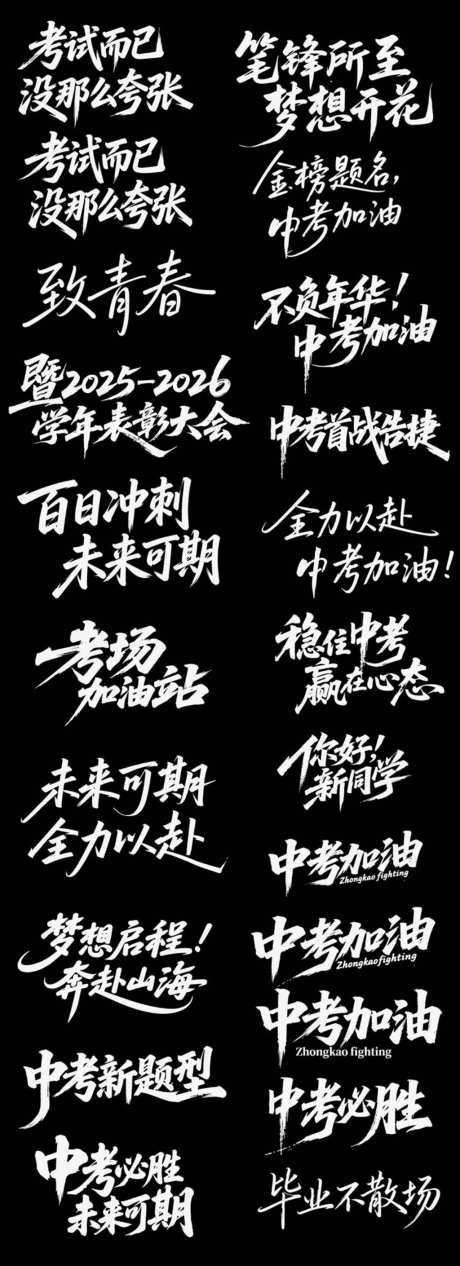 考试而已
没那么夸张
考试而已
没那么夸张
致青春
暨2025-2026
学年表彰大会
百日冲刺
未来可期
考场
加油站
未来可期
全力以赴
梦想启程！
奔赴山海
中考新题型
中考必胜
未来可期
笔锋所至
梦想开花
金榜题名，
中考加油
不负年华！
中考加油
中考首战告捷
全力以赴
中考加油！
稳住中考
赢在心态
你好！
新同学
中考加油
Zhongkao fighting
中考加油
Zhongkao fighting
中考加油
Zhongkao fighting
中考必胜
毕业不散场